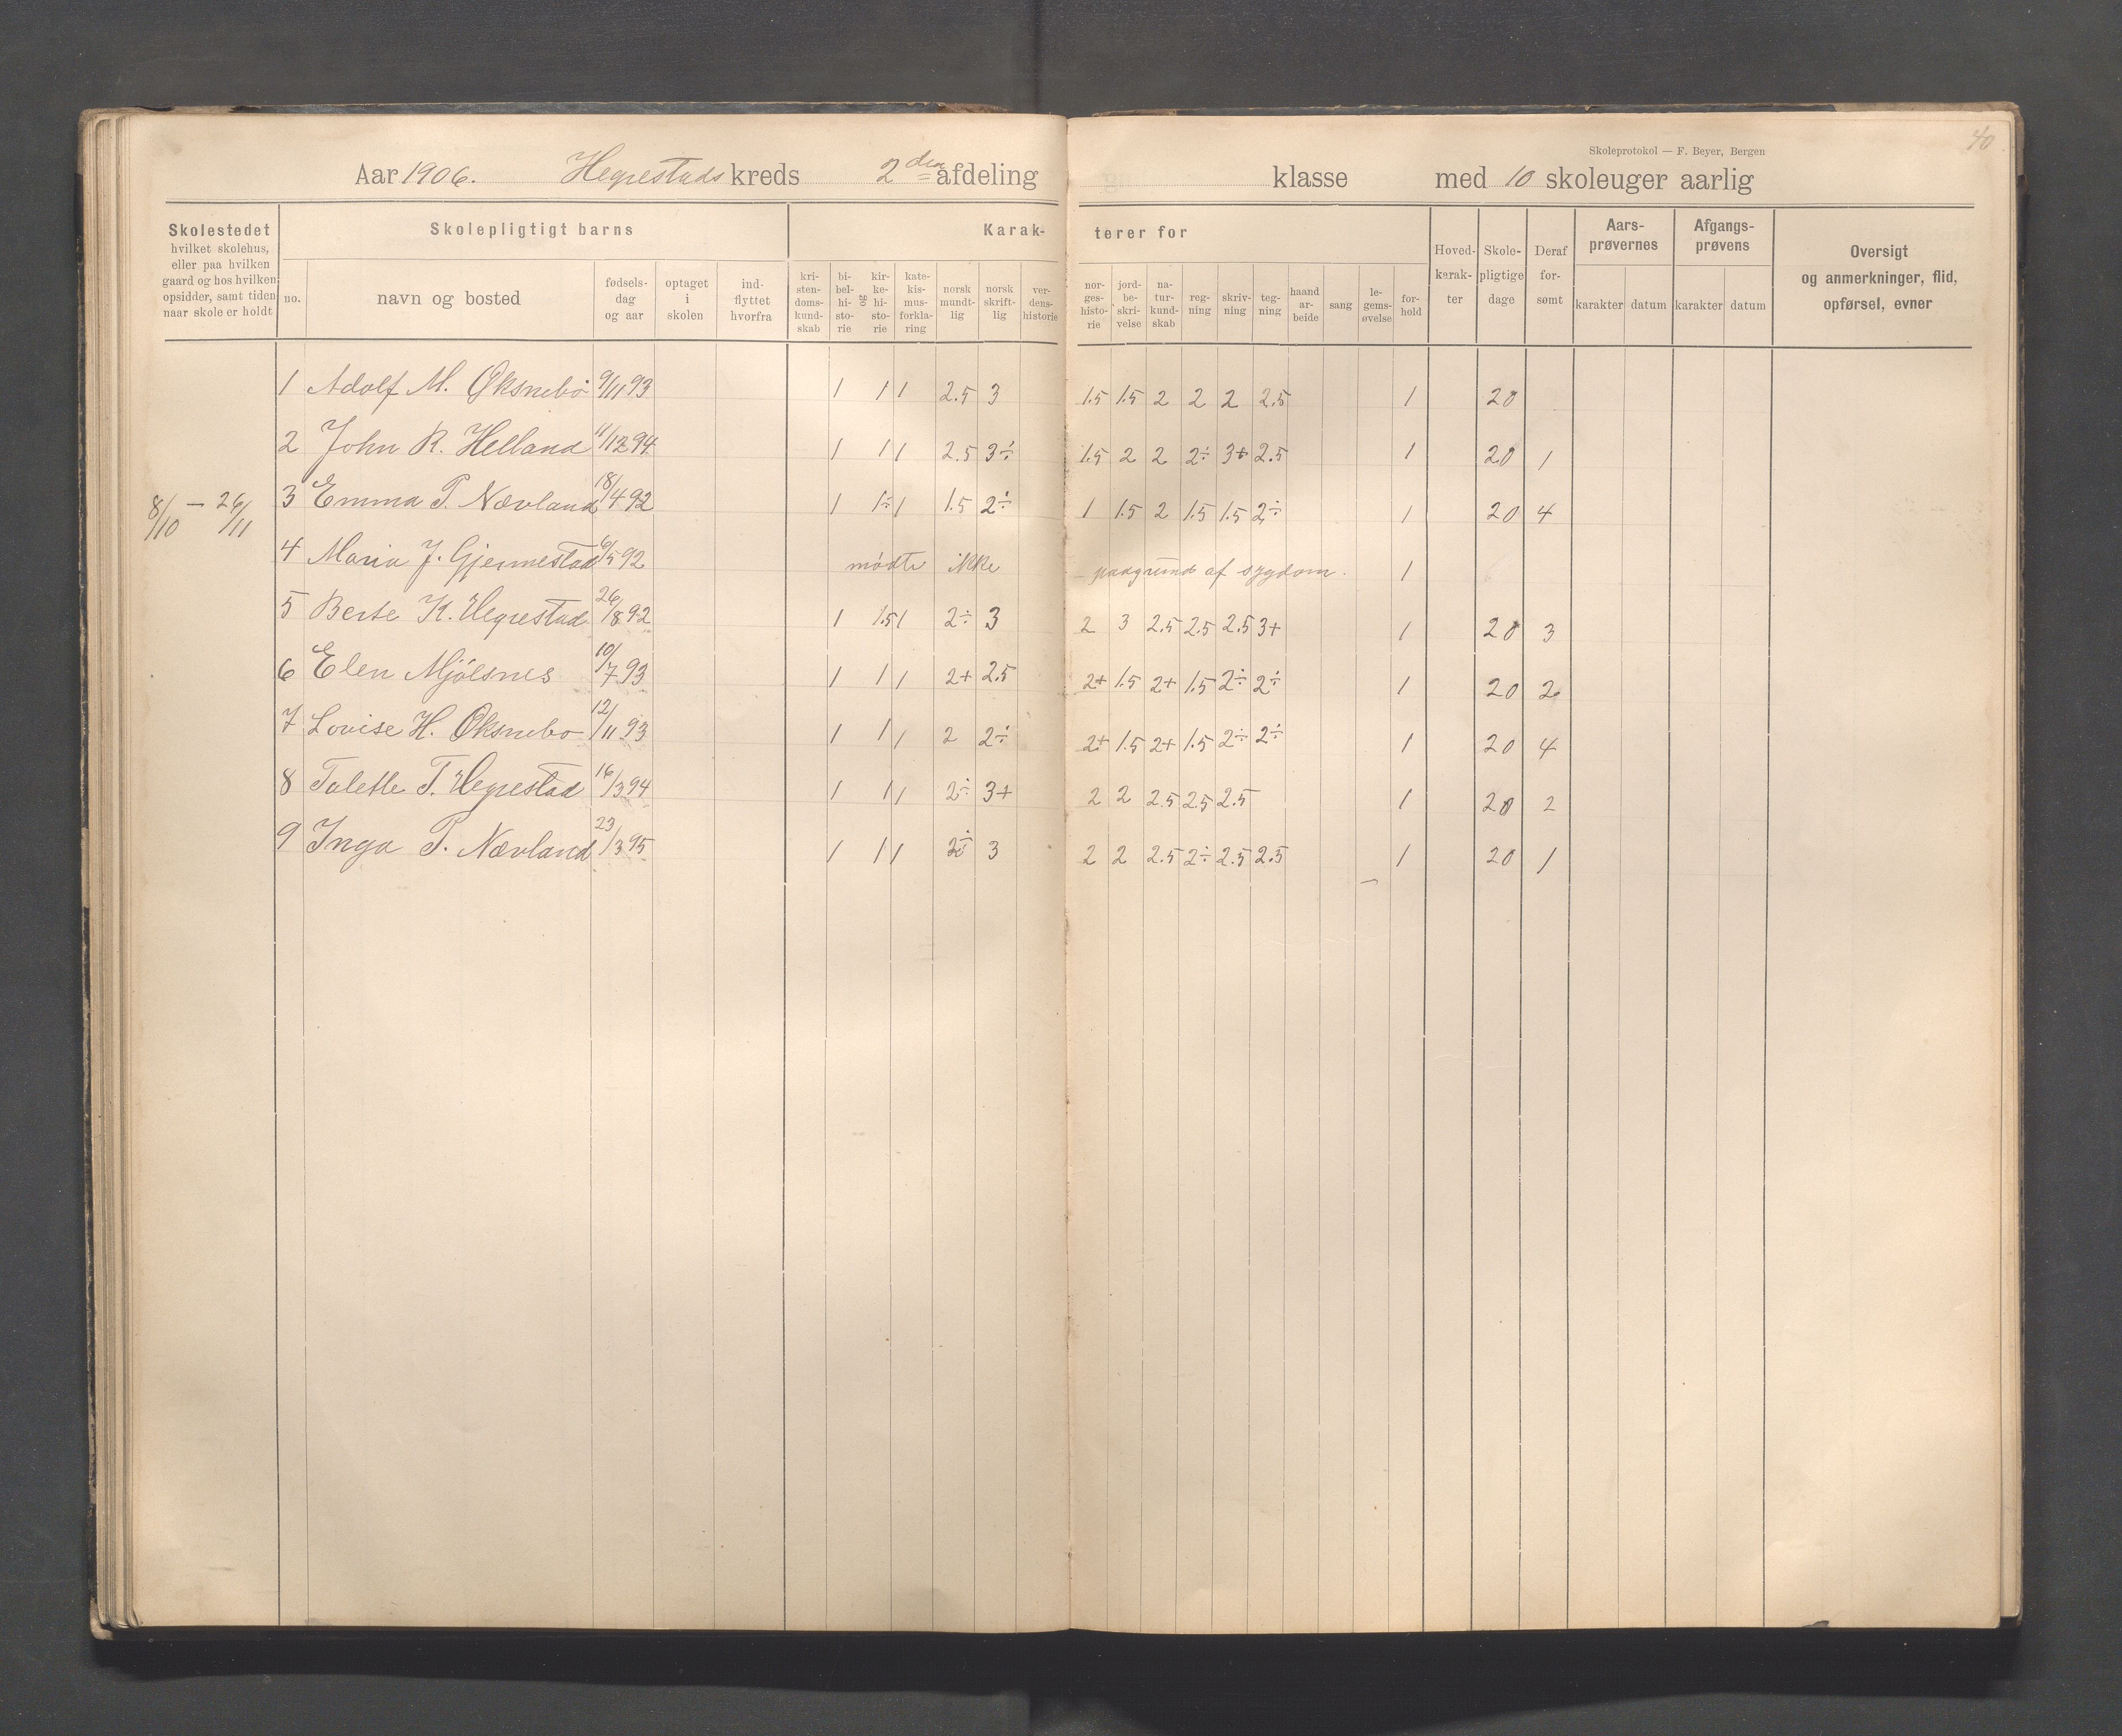 40
Skoleprotokol — F. Beyer, Bergen
Aar 1906. Hegrestads kreds 2den afdeling klasse med 10 skoleuger aarlig
Skolestedet hvilket skolehus, eller paa hvilken gaard og hos hvilken opsidder, samt tiden naar skole er holdt
Skolepligtigt barns
Karak- terer for
no. navn og bosted fødsels- dag og aar optaget i skolen ind- flyttet hvorfra
kri- sten- doms- kund- skab bi- bel- hi- sto- rie og kir- ke- hi- sto- rie kate- kis- mus- forkla- ring norsk mundt- lig norsk skrift- lig ver- dens- historie
nor- ges- histo- rie jord- be- skri- velse na- tur- kund- skab reg- ning skriv- ning teg- ning haand ar- beide sang le- gems- øvelse for- hold
Hoved- karak- ter Skole- pligtige dage Deraf for- sømt Aars- prøvernes karakter datum Afgangs- prøvens karakter datum
Oversigt og anmerkninger, flid, opførsel, evner
1 Adolf M. Øksnebø 9/11 93 1 1 1 2.5 3 1.5 1.5 2 2 2 2.5 1 20
2 John R. Helland 11/12 94 1 1 1 2.5 3÷ 1.5 2 2 2÷ 3+ 2.5 1 20 1
8/10 — 26/11 3 Emma P. Nævland 18/4 92 1 1÷ 1 1.5 2÷ 1 1.5 2 1.5 1.5 2÷ 1 20 4
4 Maria J. Gjermestad 6/5 92 mødte ikke – paagrund af sygdom. 1
5 Berte K. Hegrestad 26/8 92 1 1.5 1 2÷ 3 2 3 2.5 2.5 2.5 3+ 1 20 3
6 Elen Mjølsnes 10/7 93 1 1 1 2+ 2.5 2+ 1.5 2+ 1.5 2÷ 2÷ 1 20 2
7 Lovise H. Øksnebø 12/11 93 1 1 1 2 2÷ 2+ 1.5 2+ 1.5 2÷ 2÷ 1 20 4
8 Talette T. Hegrestad 16/3 94 1 1 1 2÷ 3+ 2 2 2.5 2.5 2.5 1 20 2
9 Inga P. Nævland 23/3 95 1 1 1 2÷ 3 2 2 2.5 2÷ 2.5 2.5 1 20 1